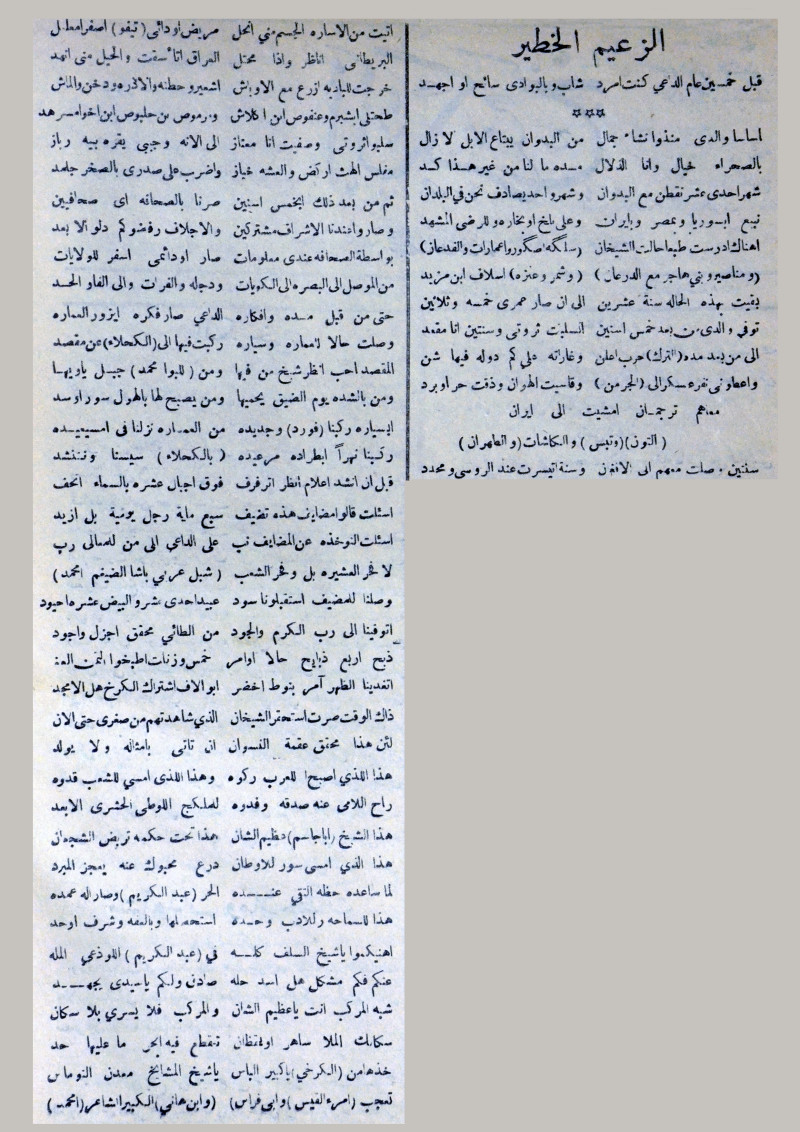 الزعيم الخطير
قبل خمسين عام الداعي كنت امرد شاب وبالبوادي سائح او اجهد
***
اساسا والدي منذو انشاء جمال من البدوان يبتاع الابل لا زال
بالصحراء خيال وانا الدلال مده ما لنا من غير هذا كد
شهر احدى عشر نقطن مع البدوان وشهر واحد يصادف نحن في البلدان
نبيع ابسوريا وبمصر وبايران وعلى بلخ او بخاره وللرضى المشهد
اهناك ادرست طبعا حالة الشيخان (سلگه اصگور واعمارات والفدعان)
(ومناصير وبني هاجر مع الدرعان) (وشمر وعنزه) اسلاف ابن مزيد
بقيت بهذه الحاله سنة عشرين الى ان صار عمري خمسه وثلاثين
توفي والدي من بعد خمس اسنين انسلبت ثروتي وسنتين انا مقعد
الى من بعد مده (الترك) حرب اعلن وغاراته على كم دوله فيها شن
واعطوني نفره عسكر الى (الجرمن) وقاسيت الهوان وذقت حر او برد
معاهم ترجمان امشيت الى ايران
(النون) (وتيس) والكاشات (والطهران)
سنتين وصلت معهم الى الافغان وسنة اتيسرت عند الروسي ومحدد
اتيت من الاساره الجسم مني انحل مريض او دائى (تيفو) اصفر امعلول
البريطاني اناظر واذا محتل العراق اتأسفت والحيل منى انهد
خرجت للباديه ازرع مع الاوباش اشعير وحطنه والاذره ودخن والماش
طحتلي ابشبرم وعنفوص ابن اكلاش ورموص بن حلبوص ابن اخو امسرهد
سلبوا ثروتى وصفيت انا ممتاز الى الانه وجيبي يقره بيه رباز
مفلس الهث اركض والعشه خباز واضرب على صدري بالصخر جلمد
ثم من بعد ذلك ابخمس اسنين صرنا بالصحافه اى صحافيين
وصاروا عندنا الاشراف مشتركين والاجلاف رفضوكم دلو الا بعد
بواسطة الصحافه عندي معلومات صار اودائمى اسفر للولايات
من الموصل الى البصره الى الكويات ودجله والفرات والى الفاو الحد
حتى من قبل مده وافكاره الداعي صار فكره ايزور العماره
وصلت حالا لعماره وسياره ركبت فيها الى (الكحلاء) عن مقصد
المقصد احب انظر شيخ من فيها ومن (للبوا محمد) جبل ياويها
ومن بالشده يوم الضيق يحميها ومن يصبح لها بالهول سور اوسد
ابسياره ركبنا (فورد) وجديده من العماره نزلنا فى امسيعيده
ركبنا نهراً ابطراده مرعيده (بالكحلاء) سيسنا وننشد
قبل ان انشد اعلام انظر اترفرف فوق اجبال عشره بالسماء اتحف
اسئلت قالوا مضايف هذه تضيف سبع مايه رجل يومية بل ازيد
اسئلت النوخذه عن المضايف نب على الداعي الى من للمعالى رب
لا فخر العشيره بل وفخر الشعب (شبل عربي باشا الضيغم احمد)
وصلنا للمضيف استقبلونا سود عبيد احدى عشر والبيض عشره احيود
اتوفينا الى رب الكرم والجود من الطائي محقق اجزل واجود
ذبح اربع ذبايح حالا اوامر خمس وزنات اطبخوا التمن العنبر
اتغدينا الظهر آمر بنوط اخضر ابو الاف اشتراك الكرخ هل الامجد
ذاك الوقت صرت استحقر الشيخان الذي شاهدتهم من صغرى حتى الان
لئن هذا محقق عقمة النسوان ان تاتى بامثاله ولا يولد
هذا اللذي اصبحا للعرب ركوه وهذا اللذى امسي للشعب قدوه
راح اللامى عنه صدقه وفدوه لعلكج اللوطى الحشرى الابعد
هذا الشيخ (اباجاسم) عظيم الشان هذا تحت حكمه تربض الشجعان
هذا الذي امسى سور للاوطان درع محبوك عنه يعجز المبرد
لما ساعده حظه التقي عنده الحر (عبد الكريم) وصار اله عمده
هذا للسماحه وللادب وحده استحصلها وبالعفه وشرف اوحد
اهنيكموا ياشيخ السلف كله في (عبد الكريم) اللوذعي المله
عنكم فكم مشكل هل اسد حله صادق ولكم ياسيدى يجهد
شبه المركب انت ياعظيم الشان والمركب فلا يسري بلا سكان
سكانك الملا ساهر اويقظان تنقطع فيه ابحر ما عليها حد
خذها من (الكرخي) ياكبير الباس ياشيخ المشايخ معدن النوماس
تعجب (امرء القيس) وابى فراس) (وابن هاني) الكبير الشاعر (احمد)